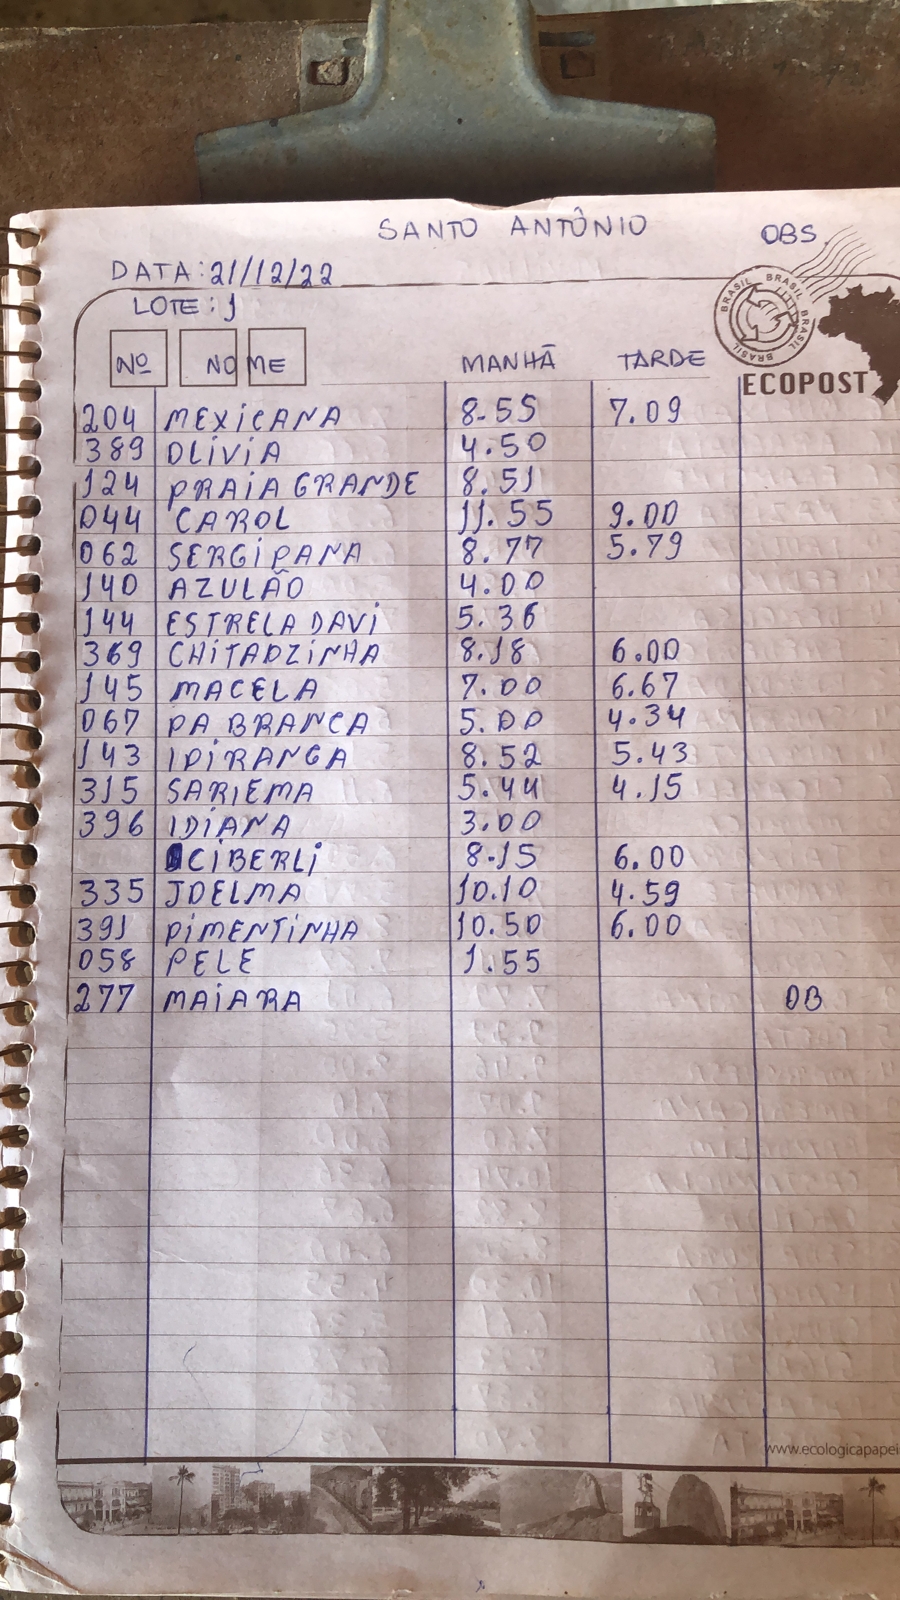 SANTO ANTÔNIO OBS.
DATA: 21/12/22
LOTE: 1
BRASIL BRASIL BRASIL BRASIL
Nº NOME MANHÃ TARDE
ECOPOST
204 MEXICANA 8.55 7.09
389 OLIVIA 4.50
124 PRAIA GRANDE 8.51
044 CAROL 11.55 9.00
062 SERGIPANA 8.77 5.79
140 AZULÃO 4.00
144 ESTRELA DAVI 5.36
369 CHITAOZINHA 8.18 6.00
145 MACELA 7.00 6.67
067 PA BRANCA 5.00 4.34
143 IPIRANGA 8.52 5.43
315 SARIEMA 5.44 4.15
396 IDIANA 3.00
CIBERLI 8.15 6.00
335 JOELMA 10.10 4.59
391 PIMENTINHA 10.50 6.00
058 PELE 1.55
277 MAIARA OB
www.ecologicapapei